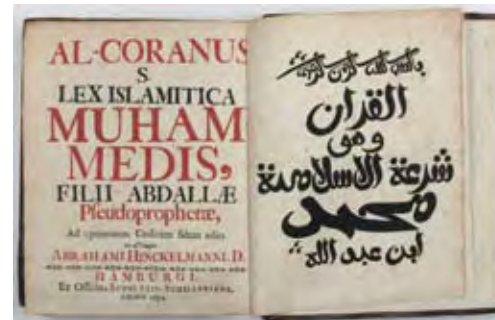 AL-CORANUS
S.
LEX ISLAMITICA
MUHAM
MEDIS,
FILII ABDALLÆ
Pseudoprophetæ,
Ad optimorum Codicum fidem edita
ABRAHAMI HINCKELMANNI, D.
HAMBURGI,
Ex Officina
القران
وهو
شرعة الاسلامية
محمد
ابن عبد الله